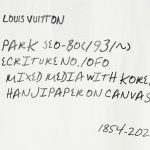 LOUIS VUITTON
PARK SEO-BO(1931~)
ECRITURE NO./OFO
MIXED MEDIA WITH KORE
HANJI PAPER ON CANVAS
1854-202